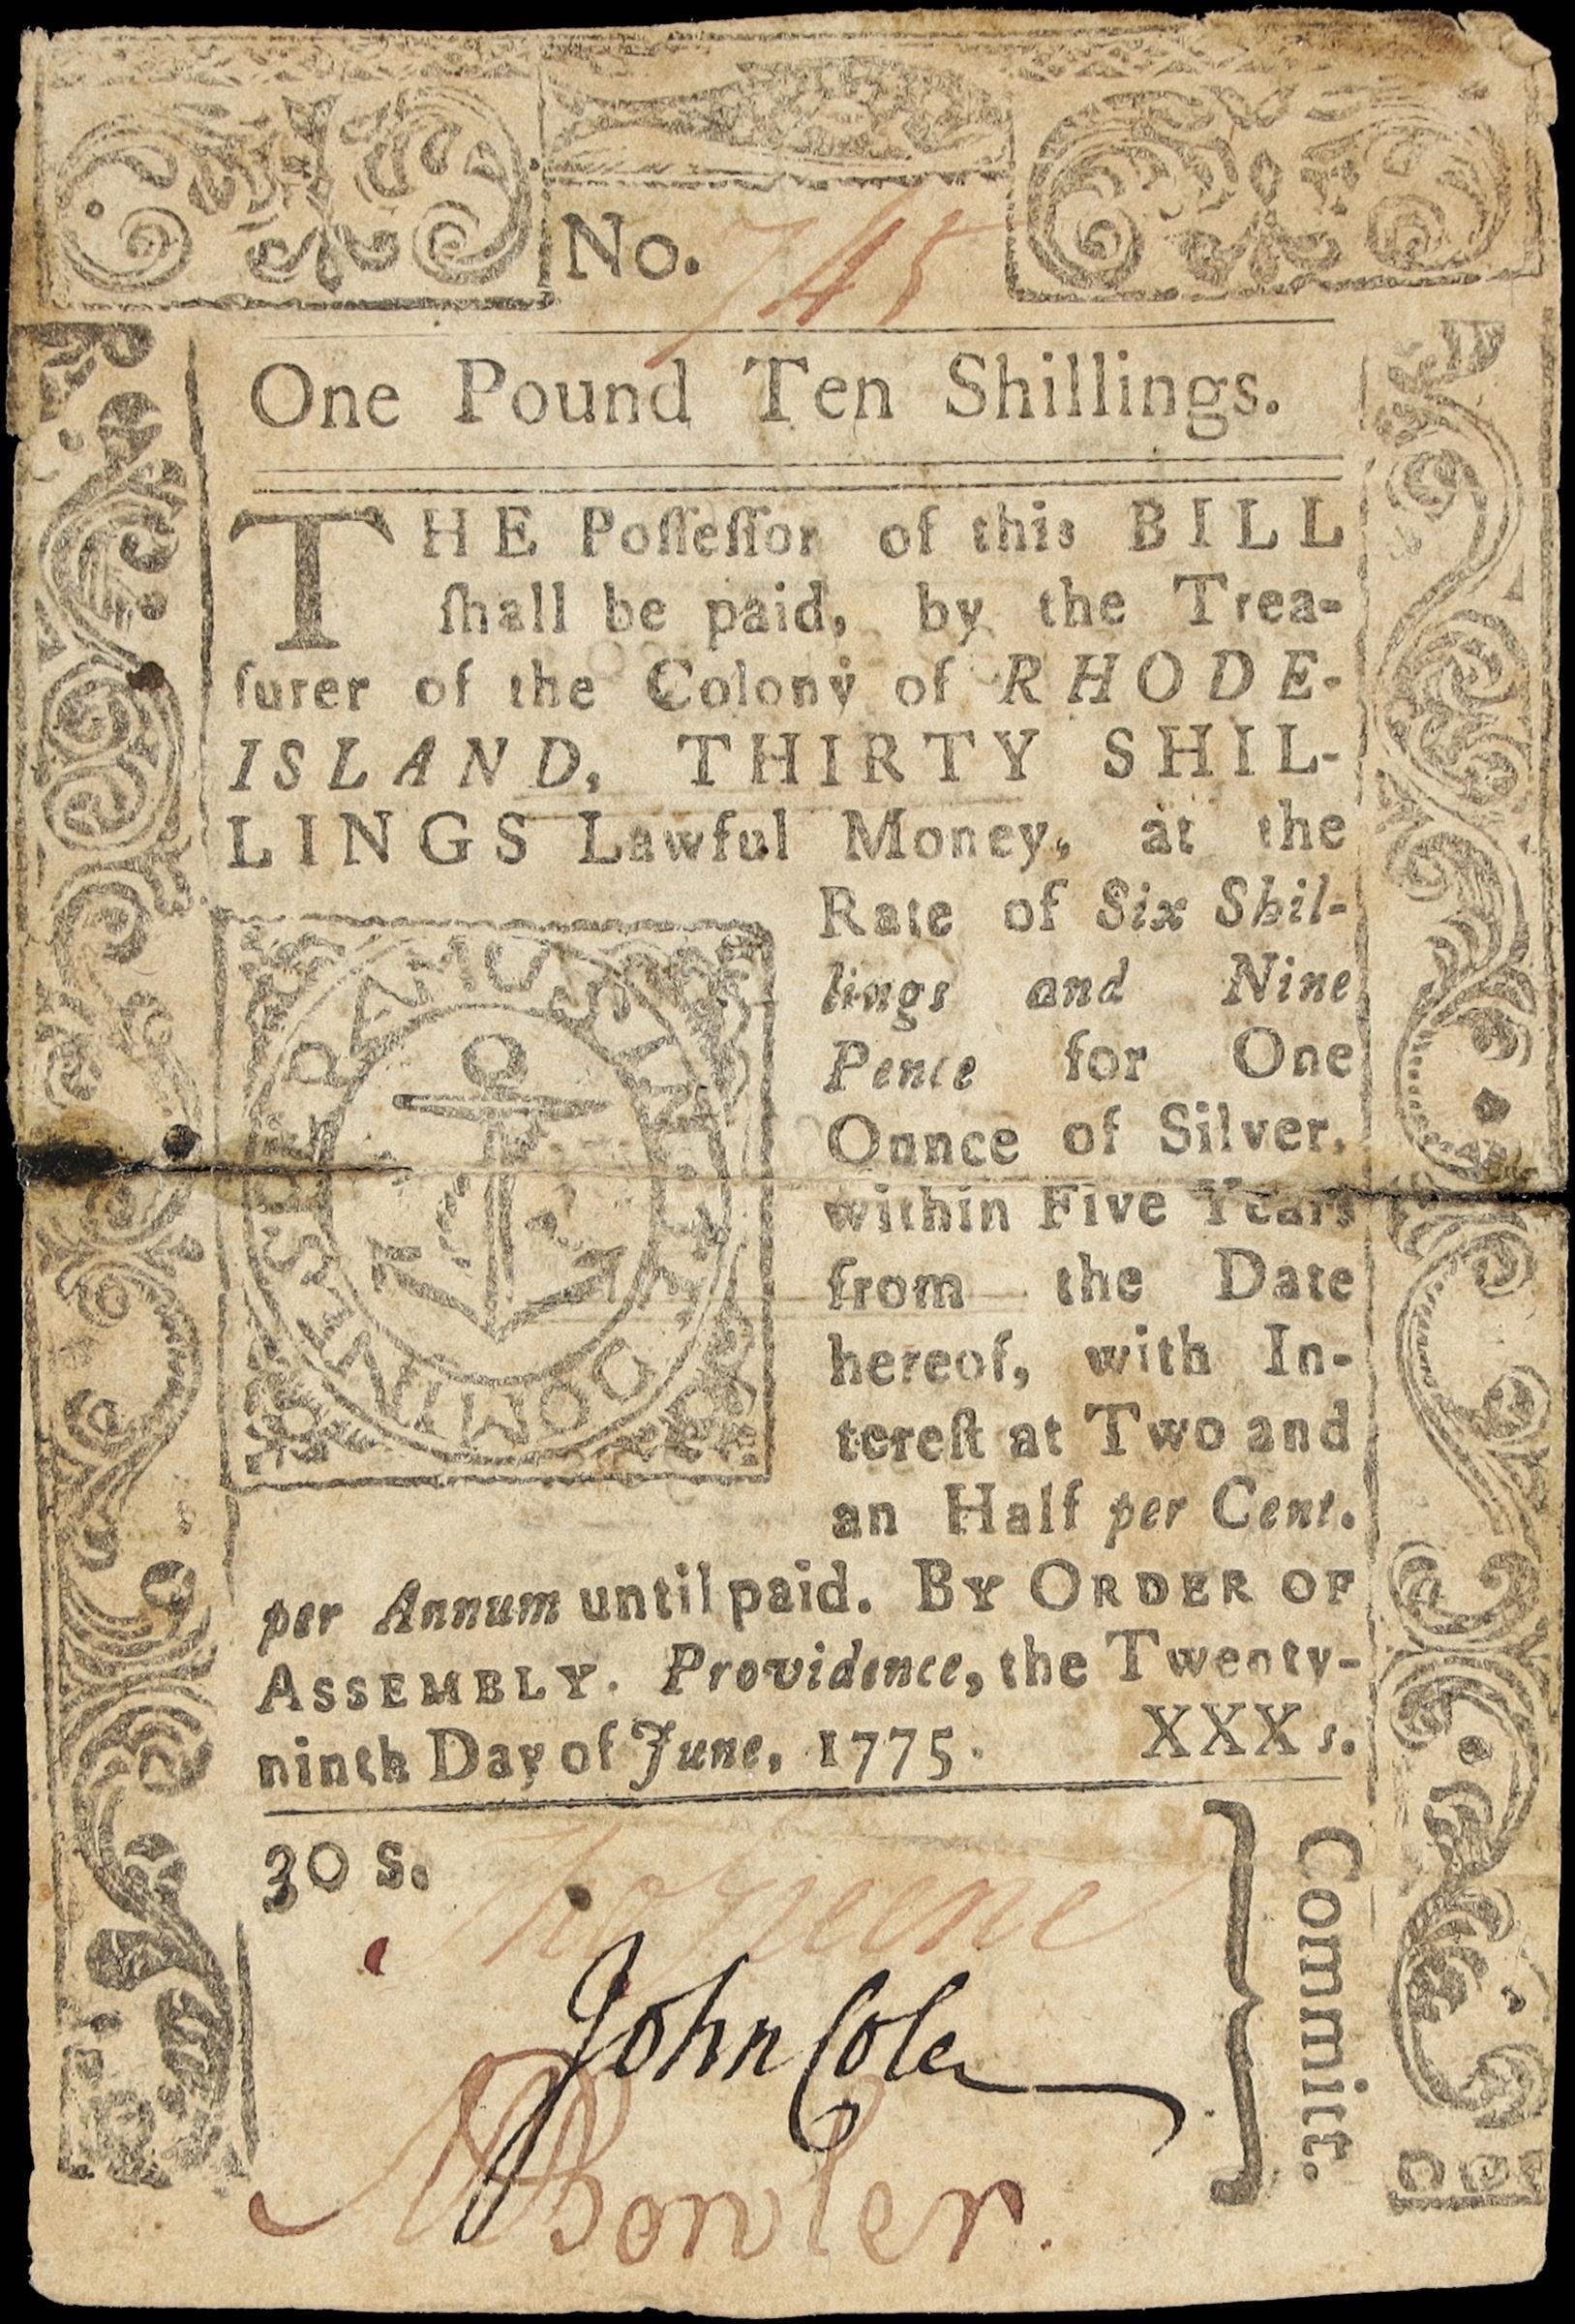 No. 745
One Pound Ten Shillings.
THE Poſſeſſor of this BILL
ſhall be paid, by the Trea-
ſurer of the Colony of RHODE-
ISLAND, THIRTY SHIL-
LINGS Lawful Money, at the
Rate of Six Shil-
lings and Nine
Pence for One
Ounce of Silver,
within Five Years
from the Date
hereof, with In-
tereſt at Two and
an Half per Cent.
per Annum until paid. BY ORDER OF
ASSEMBLY. Providence, the Twenty-
ninth Day of June, 1775. XXX s.
IN TE DOMINE SPERAMUS
30 s.
Tho Greene
John Cole
Bowler.
Committ.